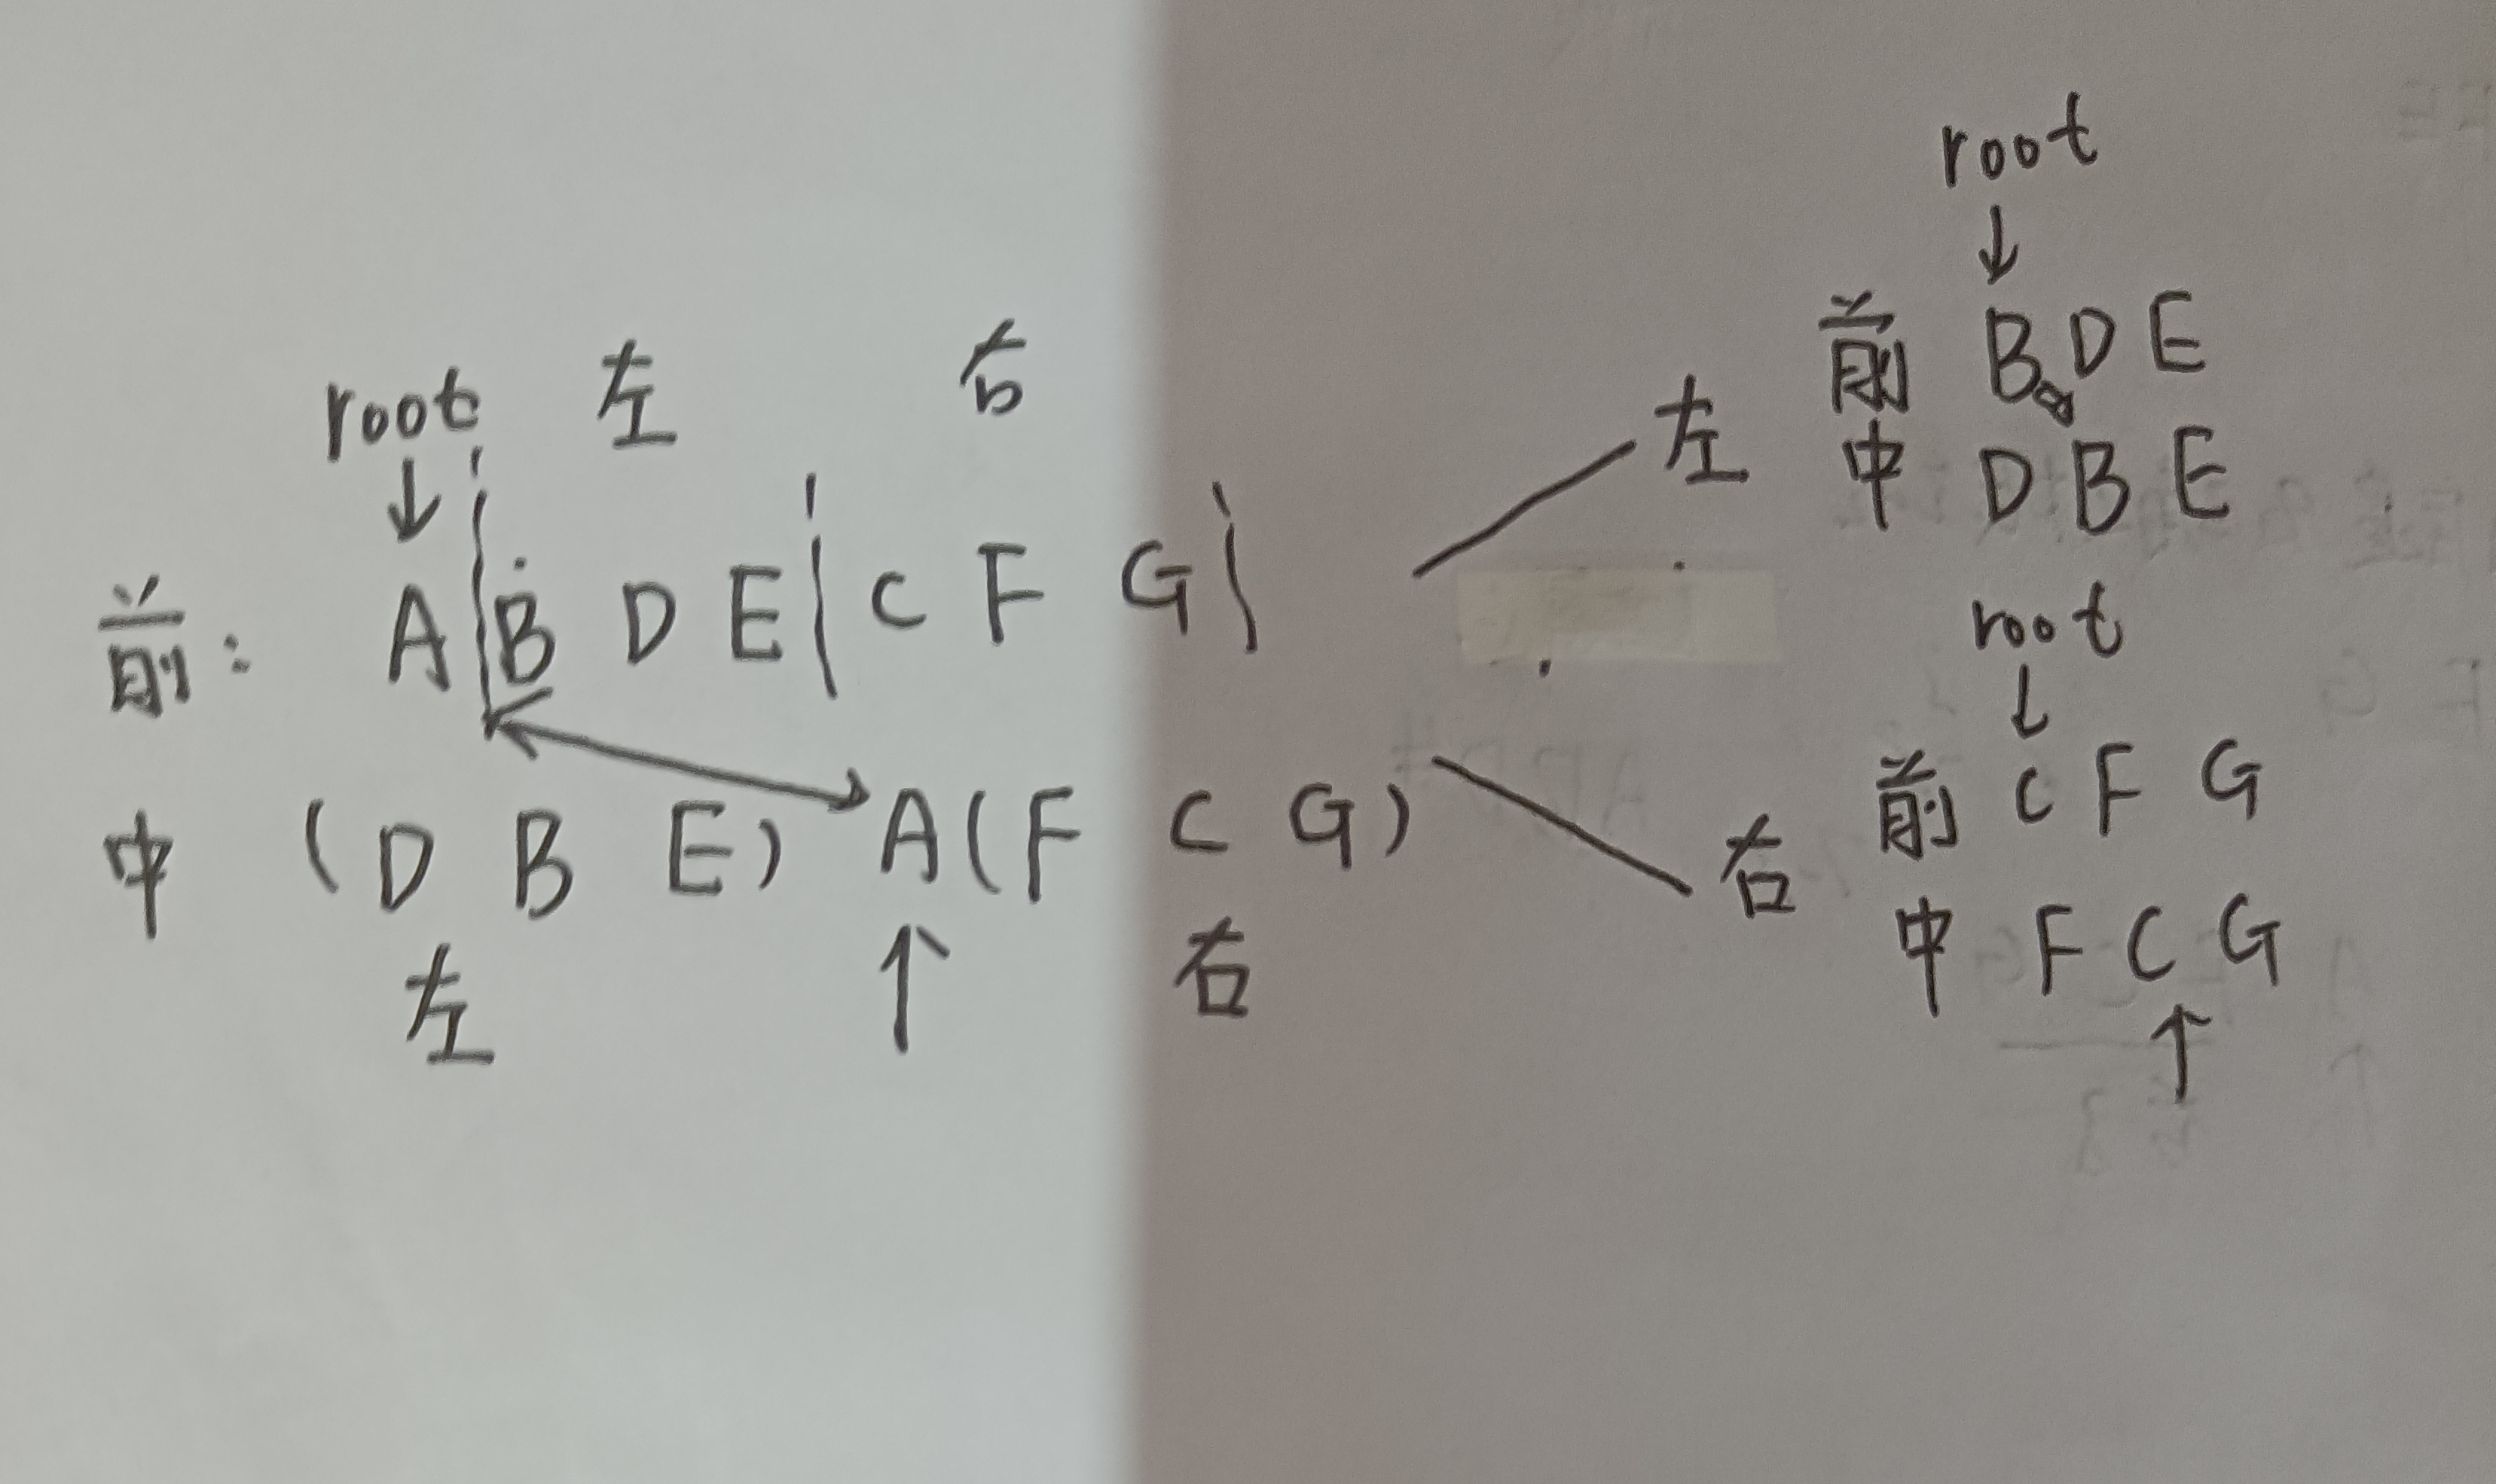 root 左 右
前: A B D E C F G
中 (D B E) A (F C G)
左 右
root
左 前 B D E
中 D B E
root
右 前 C F G
中 F C G